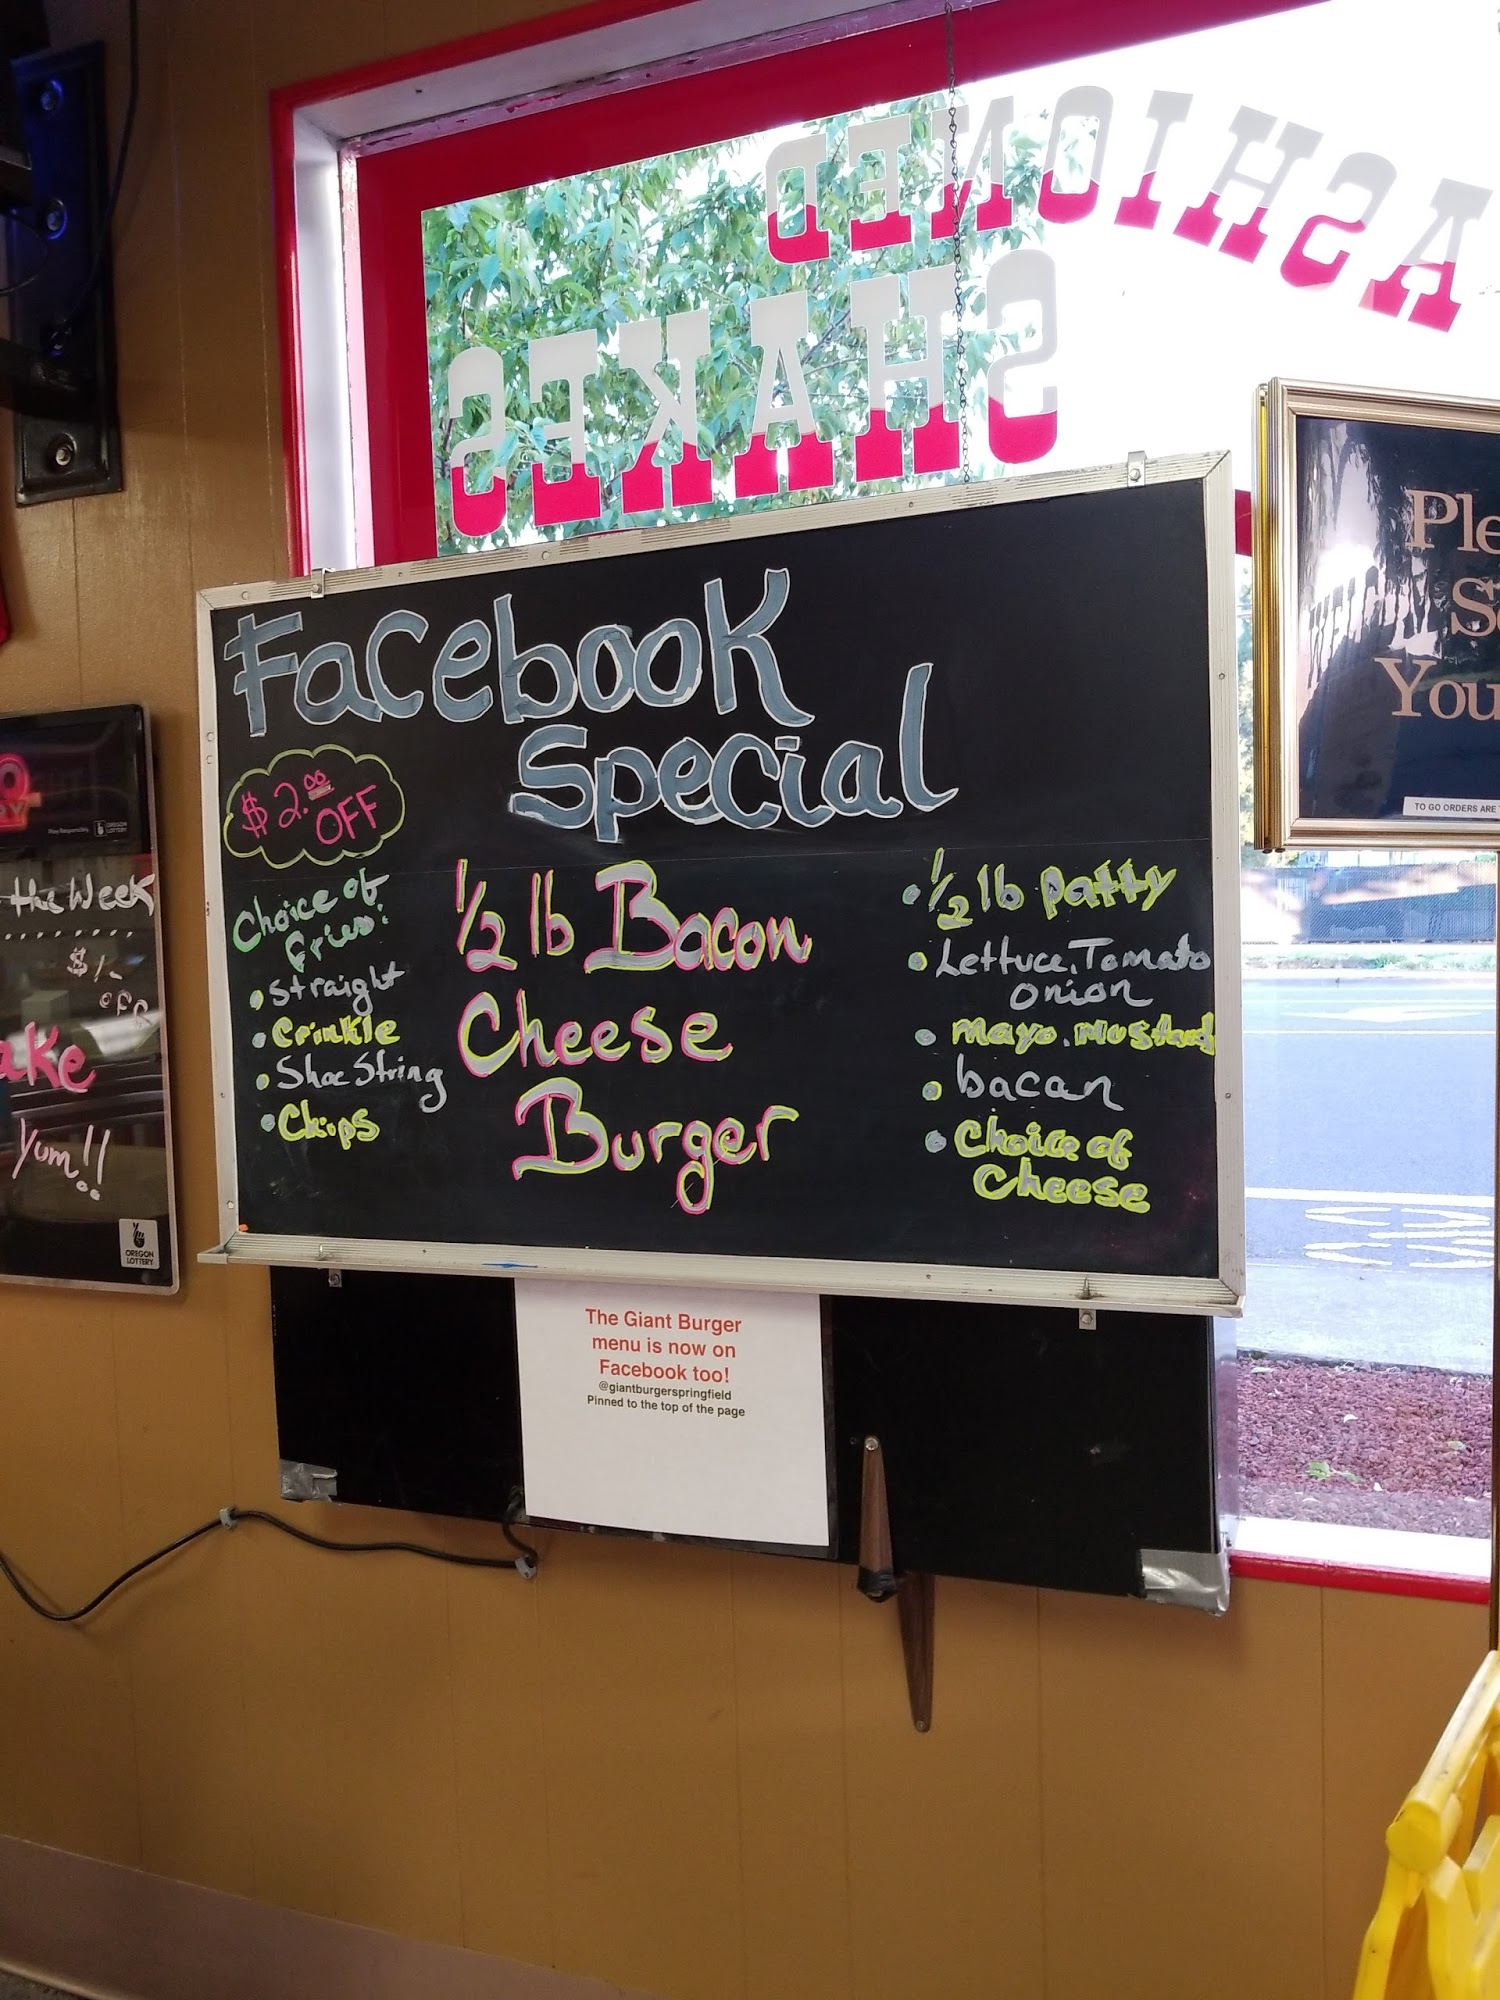 ASHIONED
SHAKES
Facebook
Special
$2.00
OFF
Choice of
fries:
• Straight
• Crinkle
• Shoe String
• Chips
1/2 lb Bacon
Cheese
Burger
• 1/2 lb patty
• Lettuce, Tomato
onion
• mayo, mustard
• bacan
• Choice of
Cheese
The Giant Burger
menu is now on
Facebook too!
@giantburgerspringfield
Pinned to the top of the page
Play Responsibly
OREGON
LOTTERY
the Week
$1-
OFF
ake
Yum!!
OREGON
LOTTERY
Ple
Se
You
TO GO ORDERS ARE